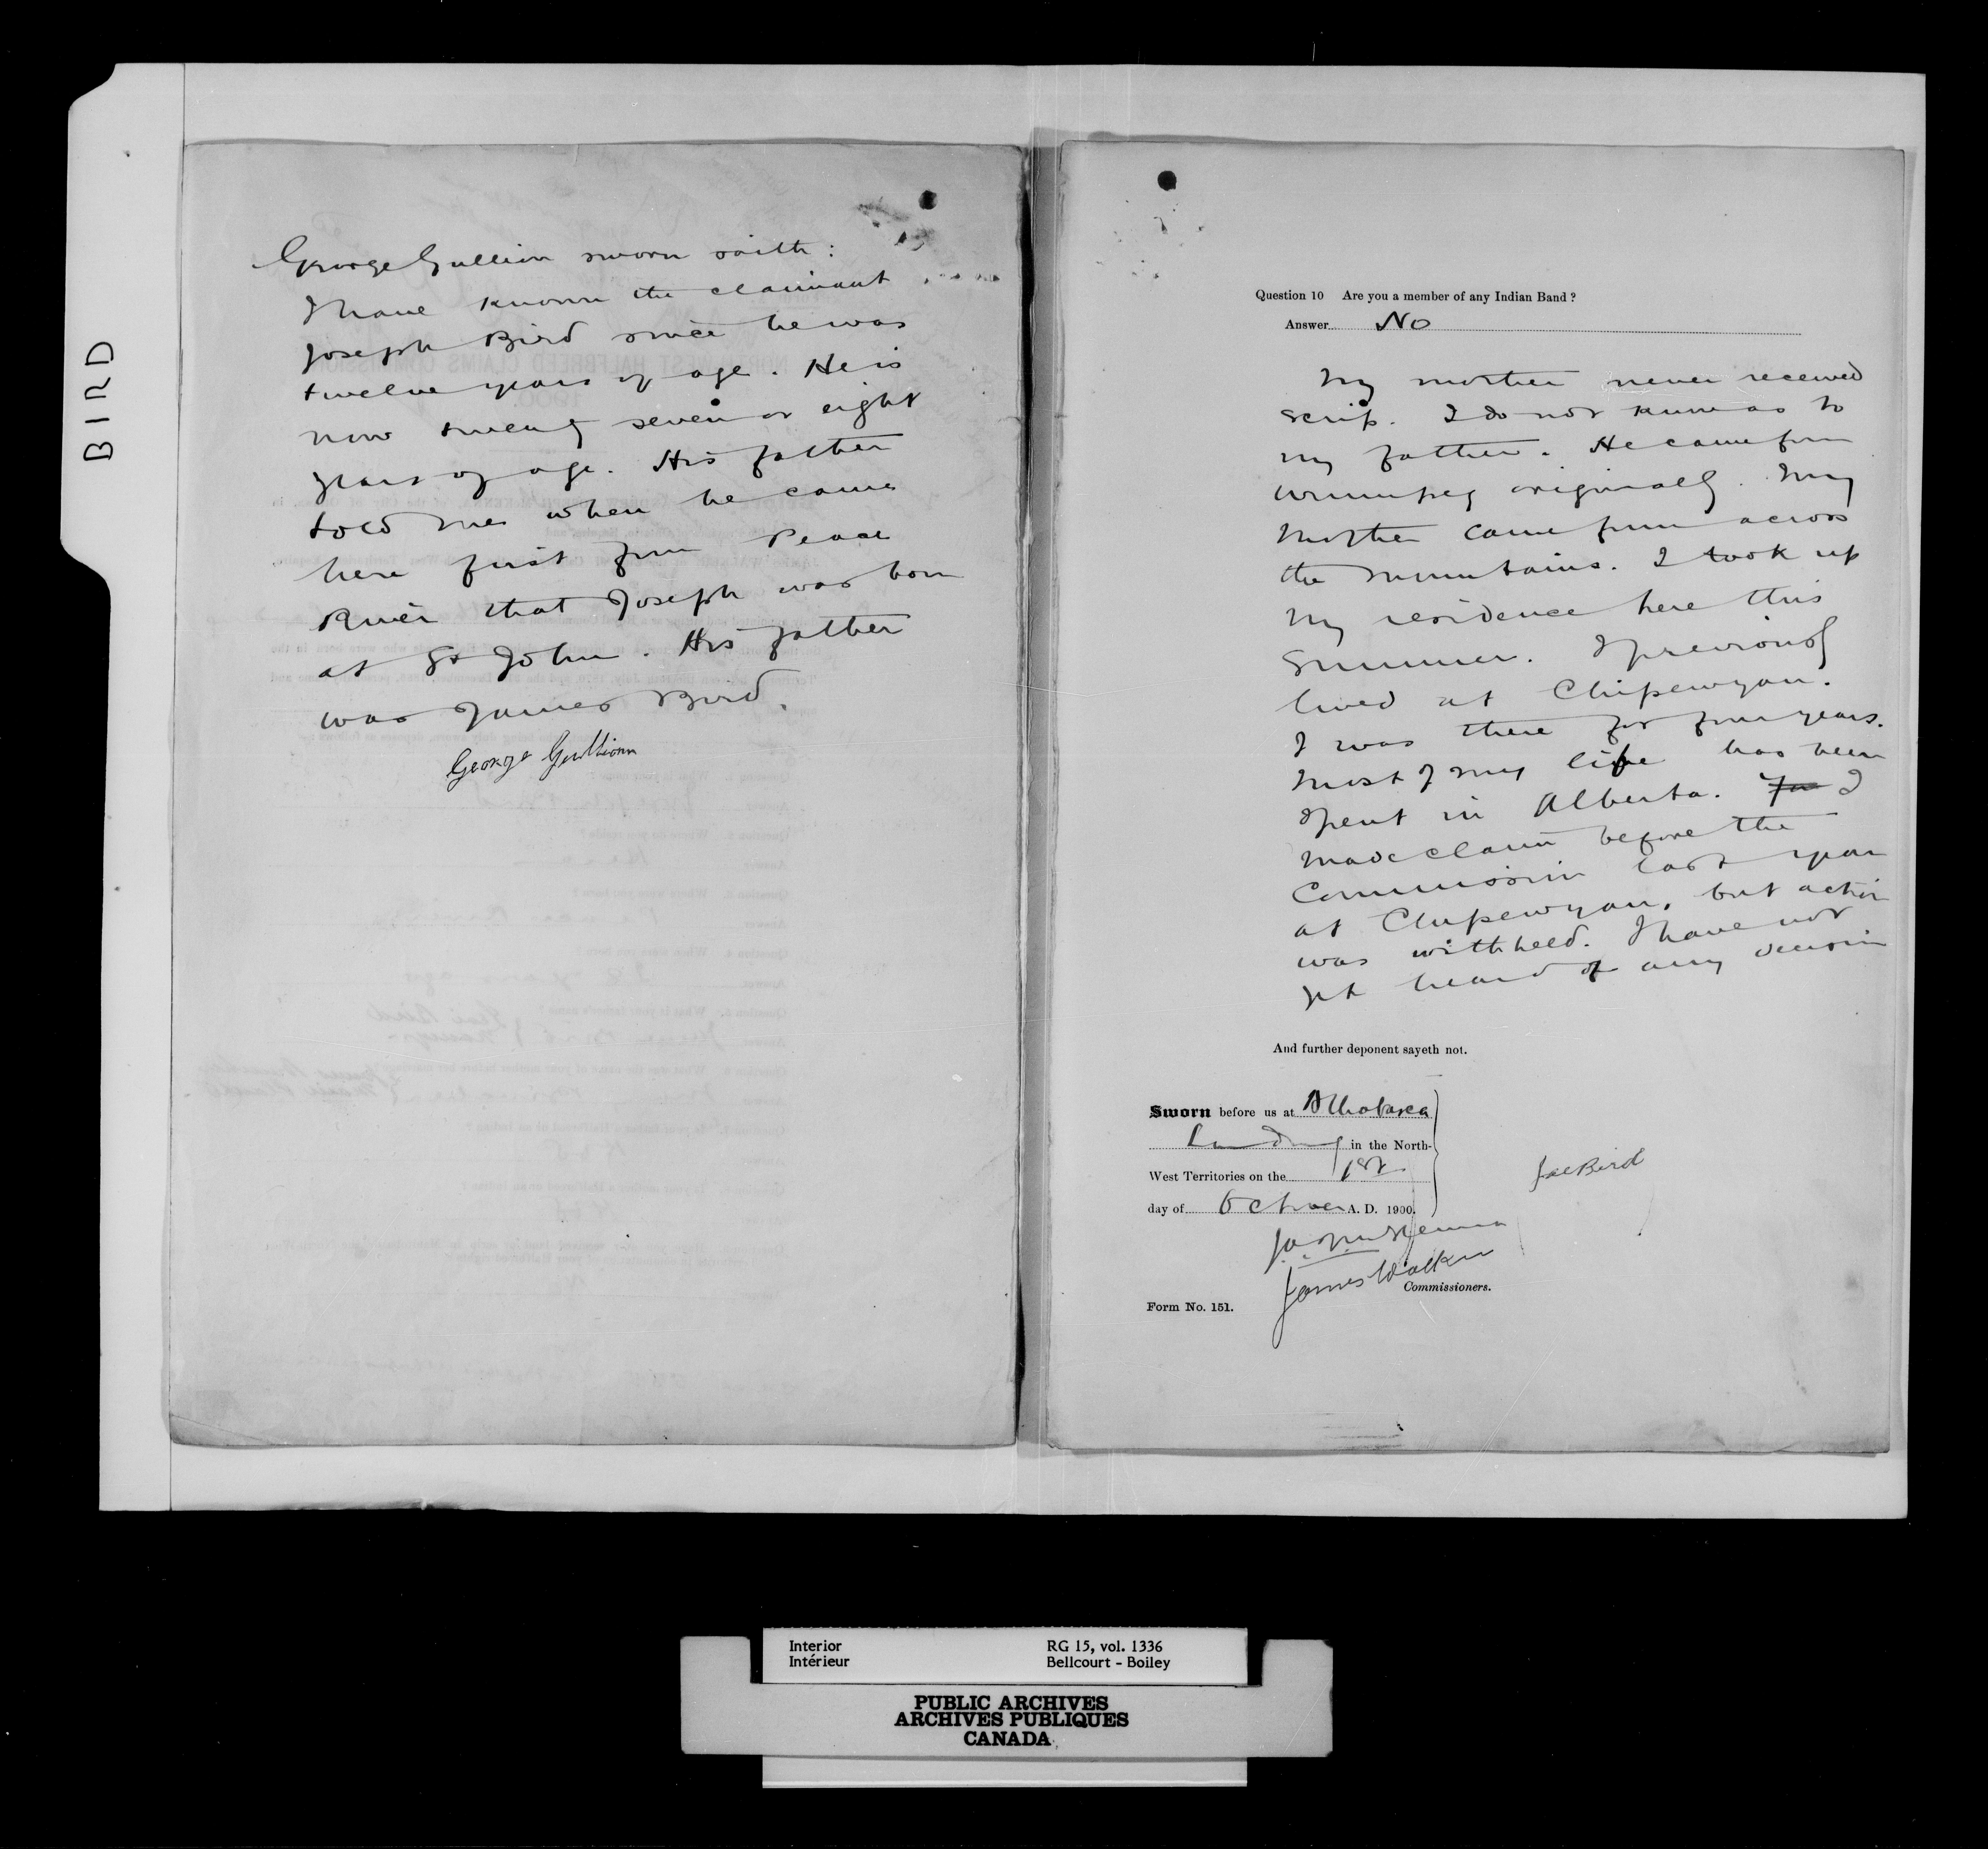 BIRD
George Gullion sworn saith:
I have known the claimant
Joseph Bird since he was
twelve years of age. He is
now twenty seven or eight
years of age. His father
told me when he came
here first from Peace
River that Joseph was born
at St John. His father
was James Bird.
George Gullionn
Question 10 Are you a member of any Indian Band?
Answer No
My mother never received
scrip. I do not know as to
my father. He came from
Winnipeg originally. My
mother came from across
the mountains. I took up
my residence here this
summer. I previously
lived at Chipewyan.
I was there for four years.
Most of my life has been
spent in Alberta. I
made claim before the
Commission last year
at Chipewyan, but action
was withheld. I have not
yet heard of any decision
And further deponent sayeth not.
Sworn before us at Athabasca
Landing in the North-
West Territories on the 1st
day of October A. D. 1900.
Joe Bird
James Walker
Commissioners.
Form No. 151.
Interior
Intérieur
RG 15, vol. 1336
Bellcourt - Boiley
PUBLIC ARCHIVES
ARCHIVES PUBLIQUES
CANADA